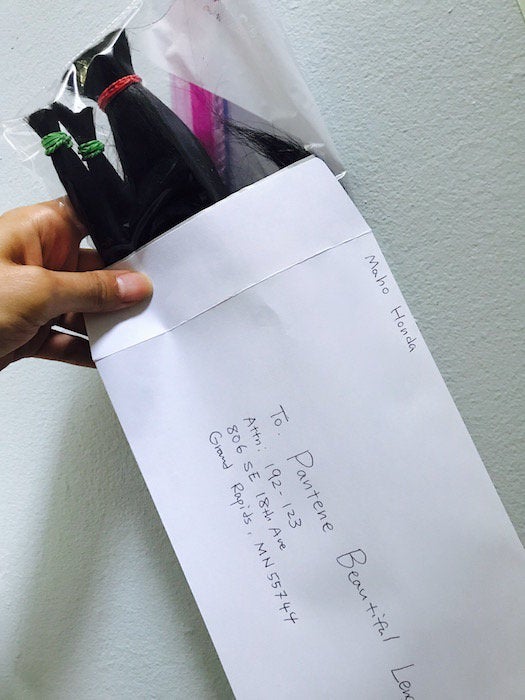 Maho Honda
To. Pantene Beautiful
Attn: 192-123
806 SE 18th Ave
Grand Rapids, MN 55744